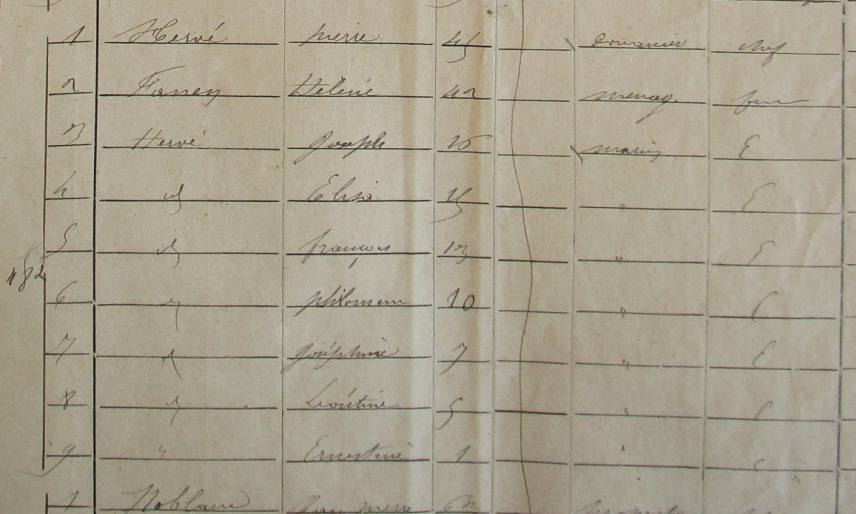 1 Hervé pierre 45 Douanier chef
2 Faney Hélène 42 menag. fme
3 Hervé Joseph 16 marin E
4 id Elisa 15 " E
5 id françois 13 " E
6 id philomene 10 " E
482
7 id Joséphine 7 " E
8 id Léontine 5 " E
9 " Ernestine 1 " E
1